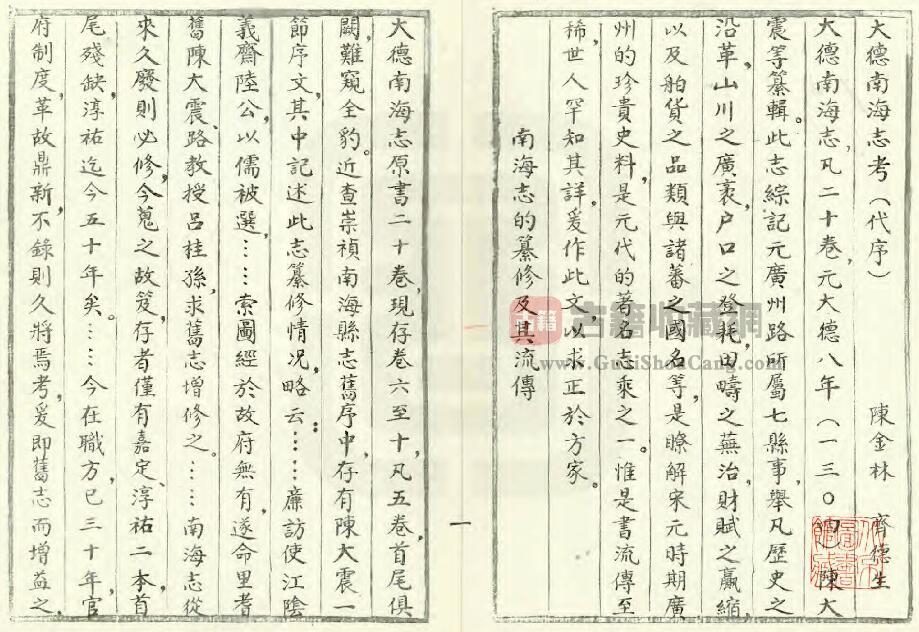 大德南海志考（代序）
陳金林　齊德生
大德南海志，凡二十卷，元大德八年（一三〇四）陳大
震等纂輯。此志綜記元廣州路所屬七縣事，舉凡歷史之
沿革，山川之廣袤，户口之登耗，田疇之蕪治，財賦之贏縮，
以及舶貨之品類與諸蕃之國名等，是瞭解宋元時期廣
州的珍貴史料，是元代的著名志乘之一。惟是書流傳至
稀，世人罕知其詳。爰作此文，以求正於方家。
南海志的纂修及其流傳
大德南海志原書二十卷，現存卷六至十，凡五卷，首尾俱
闕，難窺全豹。近查崇禎南海縣志舊序中，存有陳大震一
節序文，其中記述此志纂修情况，略云：……廉訪使江陰
義齋陸公，以儒被選，……索圖經於故府無有，遂命里耆
舊陳大震、路教授呂桂孫，求舊志增修之。……南海志從
來久廢則必修，今蒐之故笈，存者僅有嘉定、淳祐二本，首
尾殘缺，淳祐迄今五十年矣。……今在職方已三十年，官
府制度，革故鼎新，不錄則久將焉考，爰即舊志而增益之，
一
古籍
古籍收藏網
www.GuJiShouCang.com